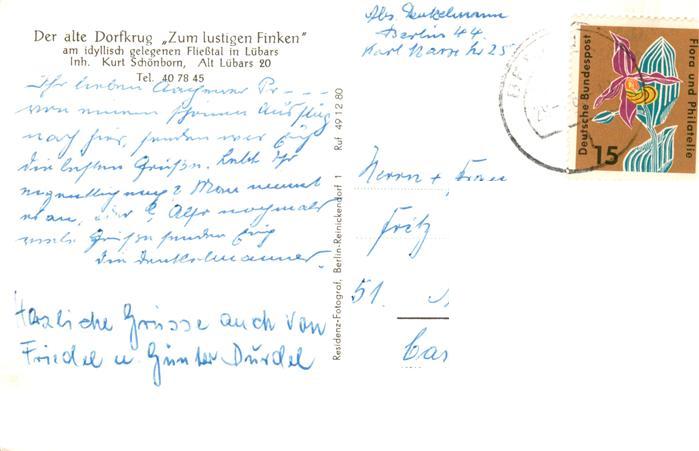 Der alte Dorfkrug „Zum lustigen Finken"
am idyllisch gelegenen Fließtal in Lübars
Inh. Kurt Schönborn, Alt Lübars 20
Tel. 40 78 45
Ihr lieben Aachener
von einem schönen Ausflug
nach hier, senden wir Euch
die besten Grüße. Lebt Ihr
eigentlich noch? Man nimmt
es an, Also nochmals
viele Grüße senden Euch
die Denkelmänner.
Herzliche Grüsse auch von
Friedel u. Günter Dürdel
Residenz-Fotograf, Berlin-Reinickendorf 1 Ruf 49 12 80
Abs. Denkelmann
Berlin 44
Karl Marx Str 25
Deutsche Bundespost
Flora und Philatelie
15
Herrn + Frau
Fritz
51.